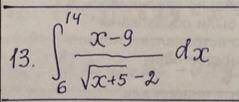 13. \int_{6}^{14} \frac{x-9}{\sqrt{x+5}-2} dx